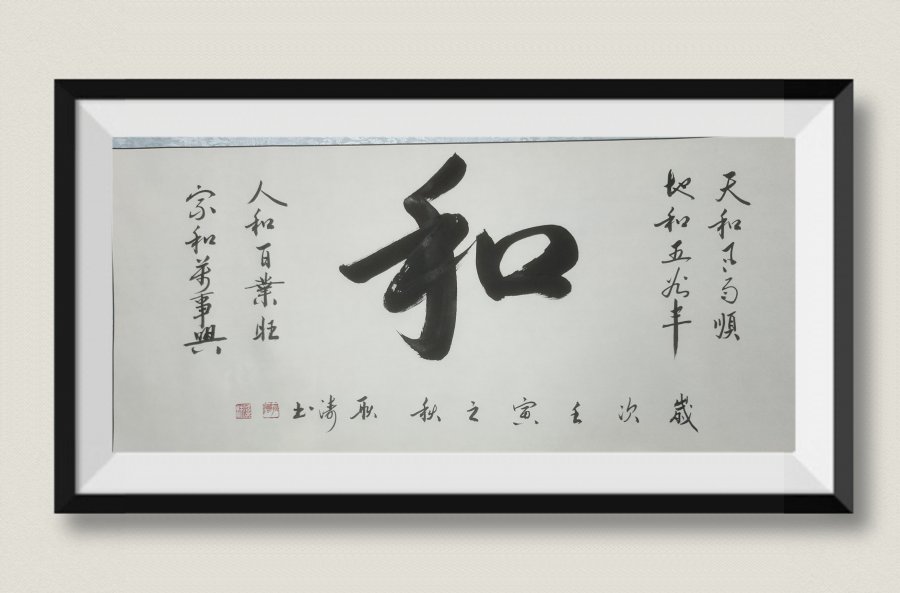 天和风雨順
地和五谷丰
和
人和百業旺
家和萬事興
歲次壬寅之秋 耿涛书